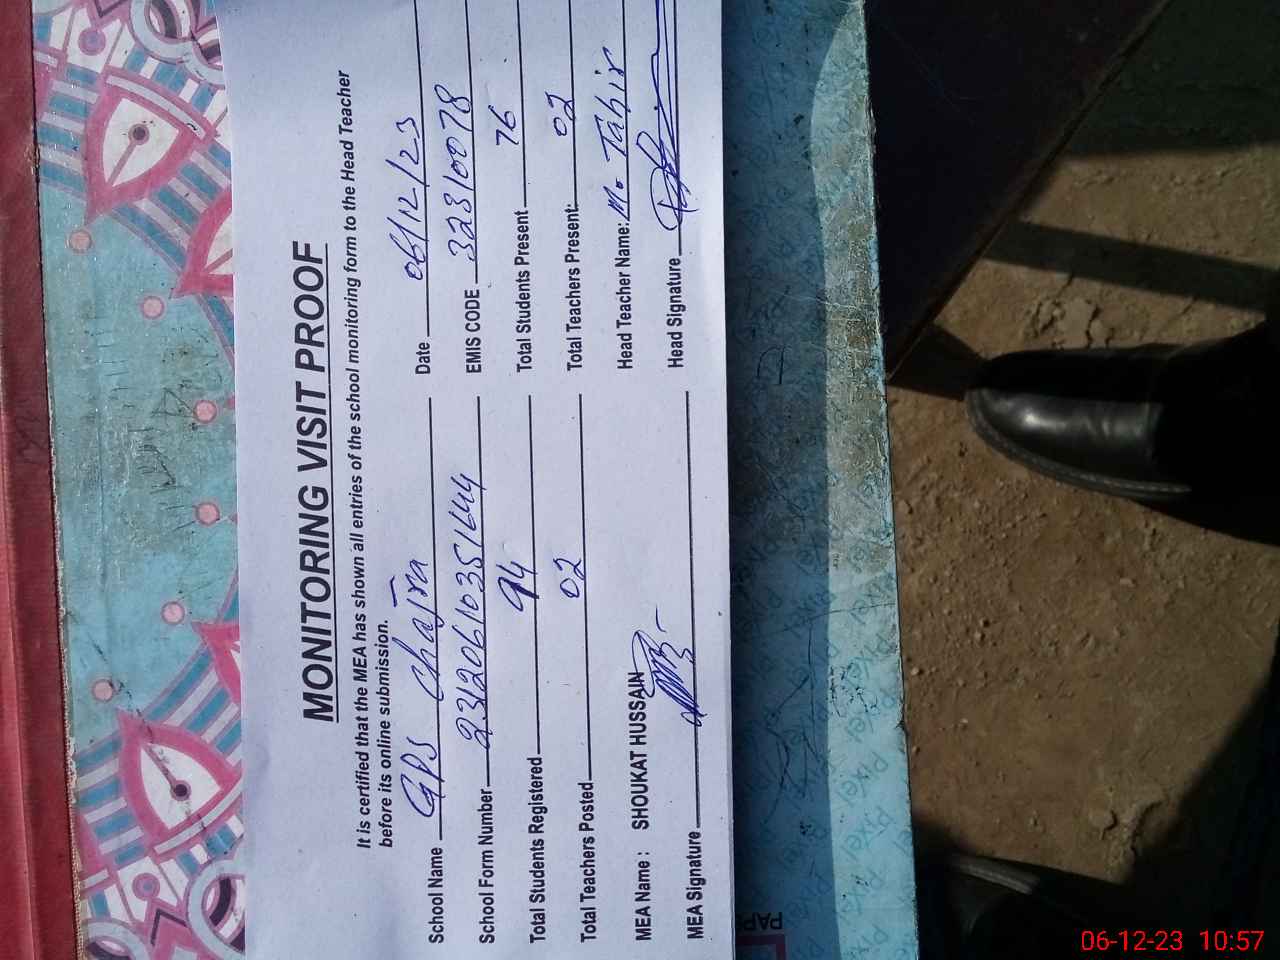 MONITORING VISIT PROOF
It is certified that the MEA has shown all entries of the school monitoring form to the Head Teacher
before its online submission.
School Name GPS Chajra Date 06/12/23
School Form Number 23120610351644 EMIS CODE 32310078
Total Students Registered 94 Total Students Present 76
Total Teachers Posted 02 Total Teachers Present: 02
MEA Name : SHOUKAT HUSSAIN Head Teacher Name: M. Tahir
MEA Signature Head Signature
06-12-23 10:57